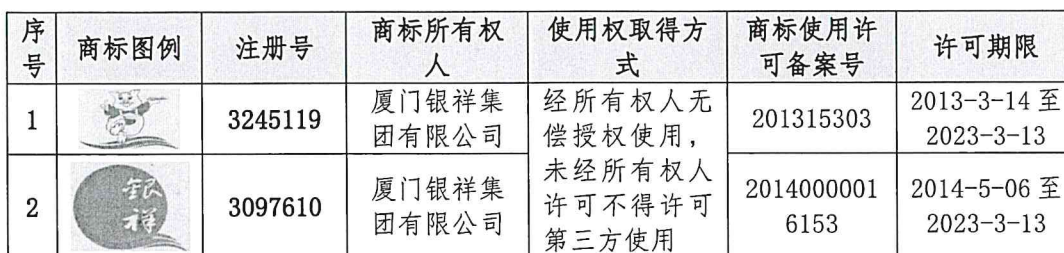 序号 商标图例 注册号 商标所有权人 使用权取得方式 商标使用许可备案号 许可期限
1 3245119 厦门银祥集团有限公司 经所有权人无偿授权使用，未经所有权人许可不得许可第三方使用 201315303 2013-3-14 至 2023-3-13
2 银祥 3097610 厦门银祥集团有限公司 20140000016153 2014-5-06 至 2023-3-13